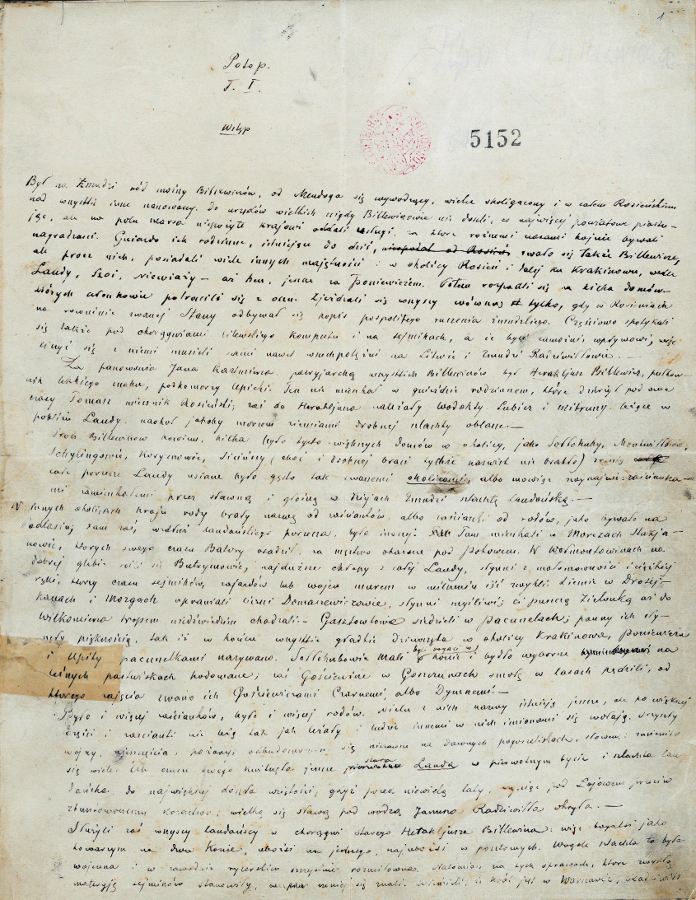 1
Potop.
T. I.
Wstęp
5152
Był na Żmudzi ród możny Billewiczów, od Mendoga się wywodzący, wielce skoligacony i w całem Rosieńskim
nad wszystkie inne szanowany. Do urzędów wielkich nigdy Billewiczowie nie doszli, co najwięcej powiatowe piastu-
jąc, ale na polu marsa niepożyte krajowi oddali usługi, za które różnemi czasami hojnie bywali
nagradzani. Gniazdo ich rodzinne, istniejące do dziś, zwało się także Billewicze,
ale prócz nich, posiadali wiele innych majętności i w okolicy Rosień i dalej ku Krakinowu, wedle
Laudy, Szoi, Niewiaży — aż hen, jeszcze za Poniewieżem. Potem rozpadli się na kilka domów
których członkowie potracili się z oczu. Zjeżdżali się wszyscy wówczas tylko, gdy w Rosieniach
na równinie zwanej Stany odbywał się popis pospolitego ruszenia żmudzkiego. Częściowo spotykali
się także pod chorągwiami litewskiego komputu i na sejmikach, a że byli zamożni, wpływowi, więc
liczyć się z niemi musieli sami nawet wszechpotężni na Litwie i Żmudzi Radziwiłłowie.
Za panowania Jana Kazimierza, patryjarchą wszystkich Billewiczów był Herakljusz Billewicz, pułkow-
nik lekkiego znaku, podkomorzy upicki. Ten nie mieszkał w gnieździe rodzinnem, które dzierżył pod owe
czasy Tomasz miecznik Rosieński; zaś do Herakljusza należały Wodokty Lubicz i Mitruny, leżące w
pobliżu Laudy, naokół jakoby morzem ziemiami drobnej szlachty oblane.
Prócz Billewiczów bowiem, kilka było tylko większych domów w okolicy, jako Sołłohuby, Montwiłłowie,
Schyllingowie, Koryznowie, Sicińscy (choć i drobnej braci tychże nazwisk nie brakło) zresztą
całe porzecze Laudy usiane było gęsto tak zwanemi okolicami, albo mówiąc zwyczajnie zaścianka-
mi zamieszkałemi przez sławną i głośną w dziejach Żmudzi szlachtę laudańską.
W innych okolicach kraju rody brały nazwę od zaścianków, albo zaścianki od rodów, jako bywało na
Podlasiu; tam zaś, wzdłuż laudańskiego porzecza, było inaczej. Tam mieszkali w Morezach Stakja-
nowie, których swego czasu Batory osadził za męstwo okazane pod Pskowem. W Wołmontowiczach na
dobrej glebie roili się Butrymowie, najdłuższe chłopy z całej Laudy, słynni z małomówności i ciężkiej
ręki, którzy czasu sejmików, zajazdów lub wojen murem w milczeniu iść zwykli. Ziemie w Drożej-
kanach i Mozgach uprawiali liczni Domaszewiczowie, słynni myśliwi; ci puszczą Zielonką aż do
Wiłkomierza tropem niedźwiedzim chodzili. Gasztowtowie siedzieli w Pacunelach; panny ich sły-
nęły pięknością, tak iż w końcu wszystkie gładkie dziewczęta w okolicy Krakinowa, Poniewieża
i Upity pacunelkami nazywano. Sołłohubowie Mali byli bogaci w konie i bydło wyborne
leśnych pastwiskach hodowane; zaś Gościewicze w Goszczunach smołę w lasach pędzili, od
którego zajęcia zwano ich Gościewiczami Czarnemi, albo Dymnemi.
Było i więcej zaścianków, było i więcej rodów. Wielu z nich nazwy istnieją jeszcze, ale po większej
części i zaścianki nie leżą tak jak leżały i ludzie innemi w nich imionami się wołają. Przyszły
wojny, nieszczęścia, pożary, odbudowywano się nie zawsze na dawnych pogorzeliskach, słowem: zmieniło
się wiele. Ale czasu owego kwitnęła jeszcze stara Lauda w pierwotnym bycie i szlachta lau-
dańska do największej doszła wziętości, gdyż przed niewielą laty, pod Łojowem przeciw
zbuntowanemu kozactwu, wielką się sławą pod wodzą Janusza Radziwiłła okryła.
Służyli zaś wszyscy laudańscy w chorągwi starego Herakljusza Billewicza: więc bogatsi jako
towarzysze na dwa konie, ubożsi na jednego, najubożsi w pocztowych. Wogóle szlachta to była
wojenna i w zawodzie rycerskim szczególnie rozmiłowana. Natomiast na tych sprawach, które zwykłą
materyją sejmików stanowiły, mniej się znali. Wiedzieli, iż król jest w Warszawie, Radziwiłł